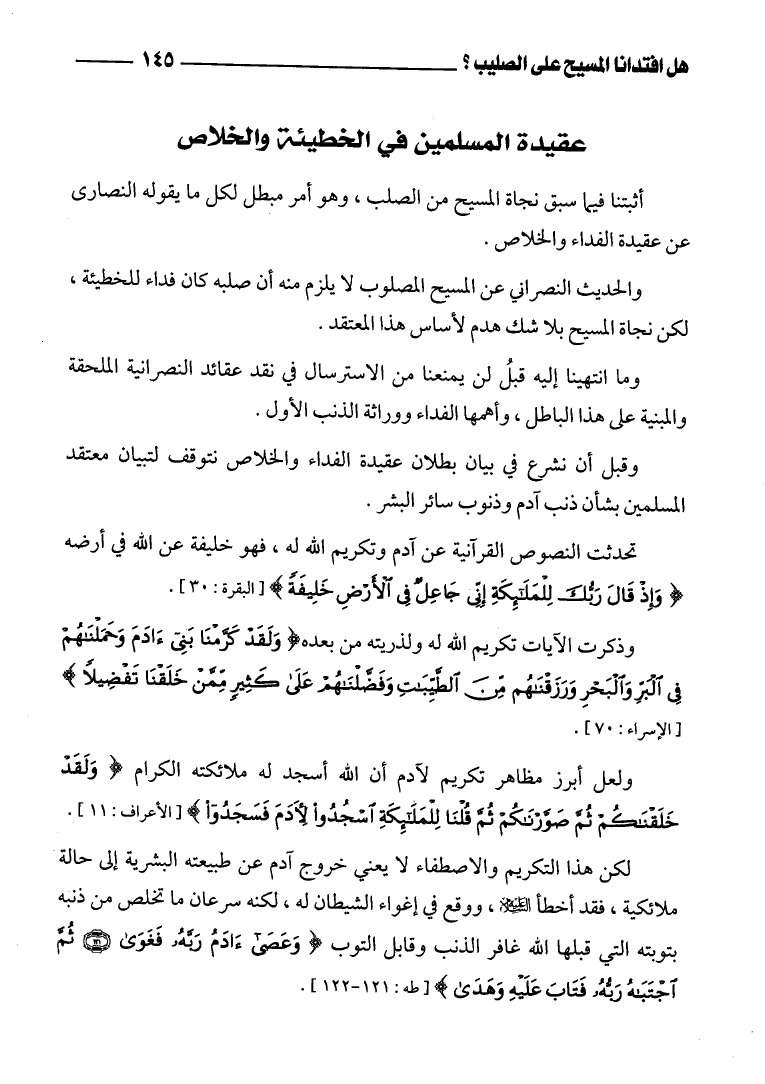 هل افتدانا المسيح على الصليب ؟ ١٤٥
عقيدة المسلمين في الخطيئة والخلاص
أثبتنا فيما سبق نجاة المسيح من الصلب ، وهو أمر مبطل لكل ما يقوله النصارى
عن عقيدة الفداء والخلاص .
والحديث النصراني عن المسيح المصلوب لا يلزم منه أن صلبه كان فداء للخطيئة ،
لكن نجاة المسيح بلا شك هدم لأساس هذا المعتقد .
وما انتهينا إليه قبلُ لن يمنعنا من الاسترسال في نقد عقائد النصرانية الملحقة
والمبنية على هذا الباطل ، وأهمها الفداء ووراثة الذنب الأول .
وقبل أن نشرع في بيان بطلان عقيدة الفداء والخلاص نتوقف لتبيان معتقد
المسلمين بشأن ذنب آدم وذنوب سائر البشر .
تحدثت النصوص القرآنية عن آدم وتكريم الله له ، فهو خليفة عن الله في أرضه
﴿ وَإِذْ قَالَ رَبُّكَ لِلْمَلَٰٓئِكَةِ إِنِّى جَاعِلٌ فِى ٱلْأَرْضِ خَلِيفَةً ﴾ [ البقرة : ٣٠ ] .
وذكرت الآيات تكريم الله له ولذريته من بعده ﴿ وَلَقَدْ كَرَّمْنَا بَنِىٓ ءَادَمَ وَحَمَلْنَٰهُمْ
فِى ٱلْبَرِّ وَٱلْبَحْرِ وَرَزَقْنَٰهُم مِّنَ ٱلطَّيِّبَٰتِ وَفَضَّلْنَٰهُمْ عَلَىٰ كَثِيرٍ مِّمَّنْ خَلَقْنَا تَفْضِيلًا ﴾
[ الإسراء : ٧٠ ] .
ولعل أبرز مظاهر تكريم لآدم أن الله أسجد له ملائكته الكرام ﴿ وَلَقَدْ
خَلَقْنَٰكُمْ ثُمَّ صَوَّرْنَٰكُمْ ثُمَّ قُلْنَا لِلْمَلَٰٓئِكَةِ ٱسْجُدُوا۟ لِأَدَمَ فَسَجَدُوٓا۟ ﴾ [ الأعراف : ١١ ] .
لكن هذا التكريم والاصطفاء لا يعني خروج آدم عن طبيعته البشرية إلى حالة
ملائكية ، فقد أخطأ عليه السلام ، ووقع في إغواء الشيطان له ، لكنه سرعان ما تخلص من ذنبه
بتوبته التي قبلها الله غافر الذنب وقابل التوب ﴿ وَعَصَىٰٓ ءَادَمُ رَبَّهُۥ فَغَوَىٰ ١٢١ ثُمَّ
ٱجْتَبَٰهُ رَبُّهُۥ فَتَابَ عَلَيْهِ وَهَدَىٰ ﴾ [ طه : ١٢١-١٢٢ ] .